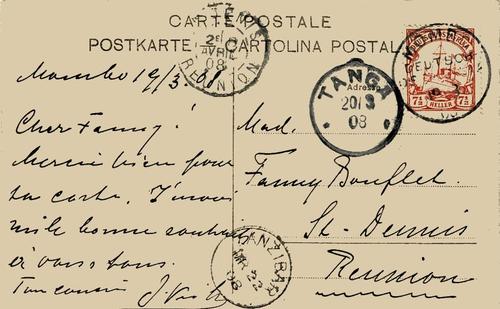 CARTE POSTALE
POSTKARTE CARTOLINA POSTALE
DEUTSCH
7½ HELLER 7½
2E
AVRIL
08
REUNION
TANGA
20/3
08
Adresse
Mombo 19/3.08
Cher Fanny!
merci bien pour
ta carte.
mile bonne
à vous tous.
Ton cousin
Mad.
Fanny
St-Dennis
Reunion
ZANZIBAR
MR 22
08